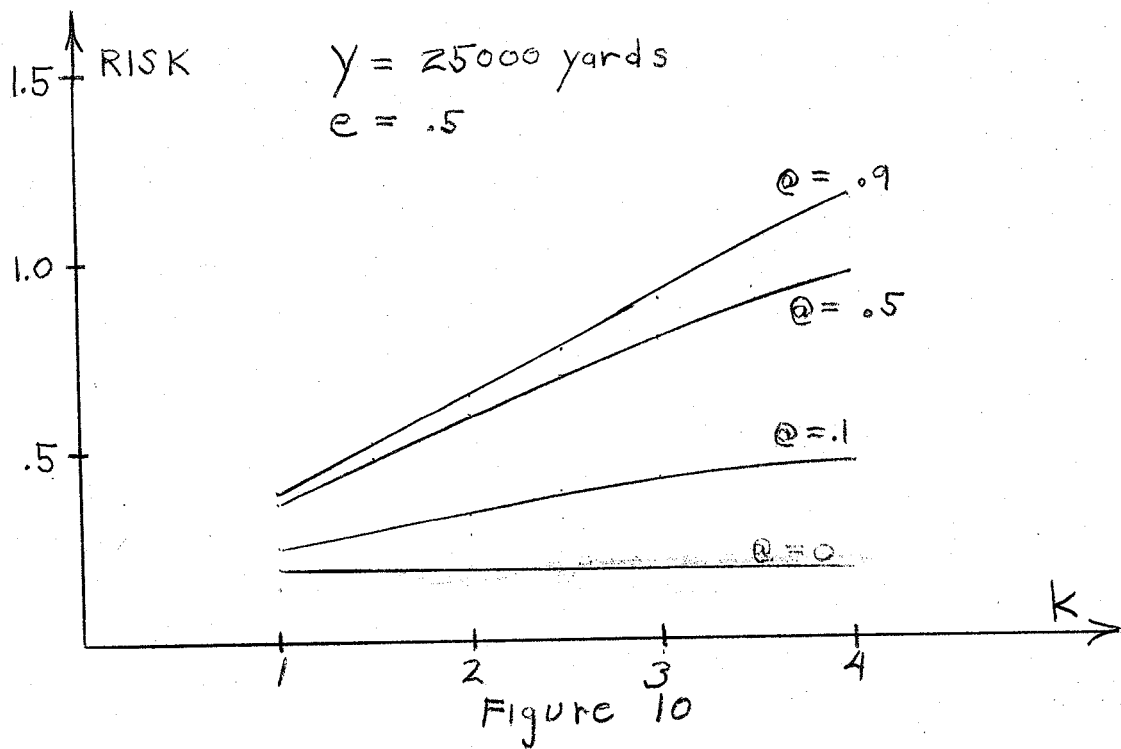 RISK
Y = 25000 yards
1.5
e = .5
@ = .9
1.0
@ = .5
@ = .1
.5
@ = 0
K
1 2 3 4
Figure 10